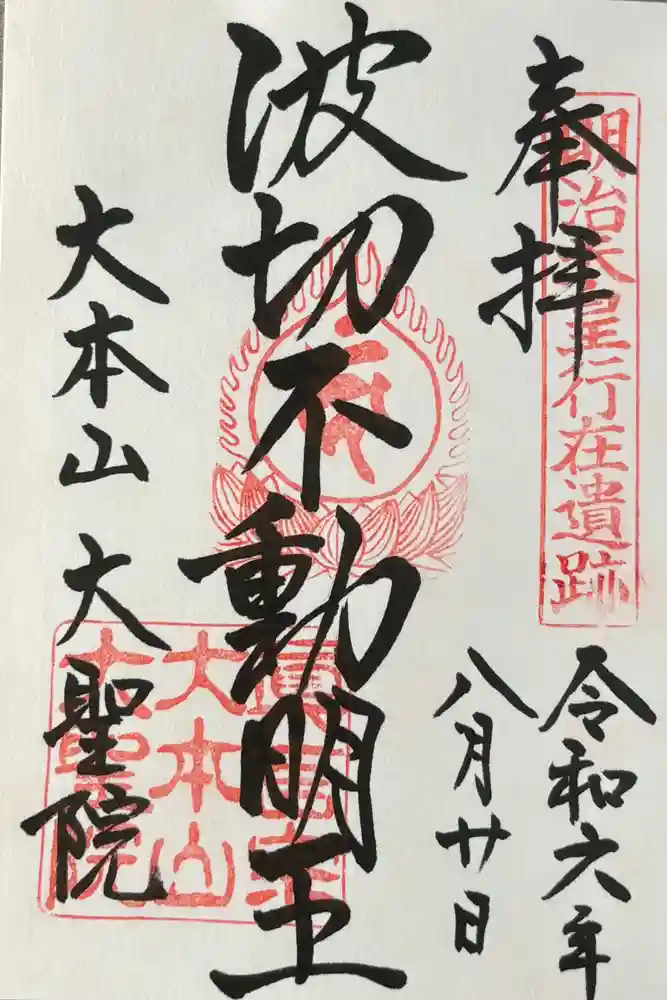 奉拝
明治天皇行在遺跡
令和六年
八月廿日
波切不動明王
大本山 大聖院
真言宗
大本山
大聖院